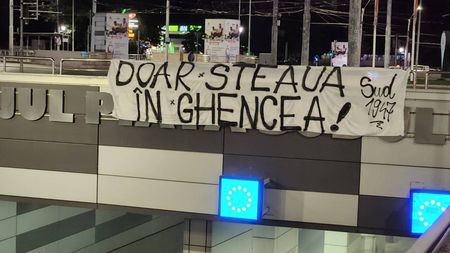 DOAR STEAUA
ÎN GHENCEA!
Sud
1947